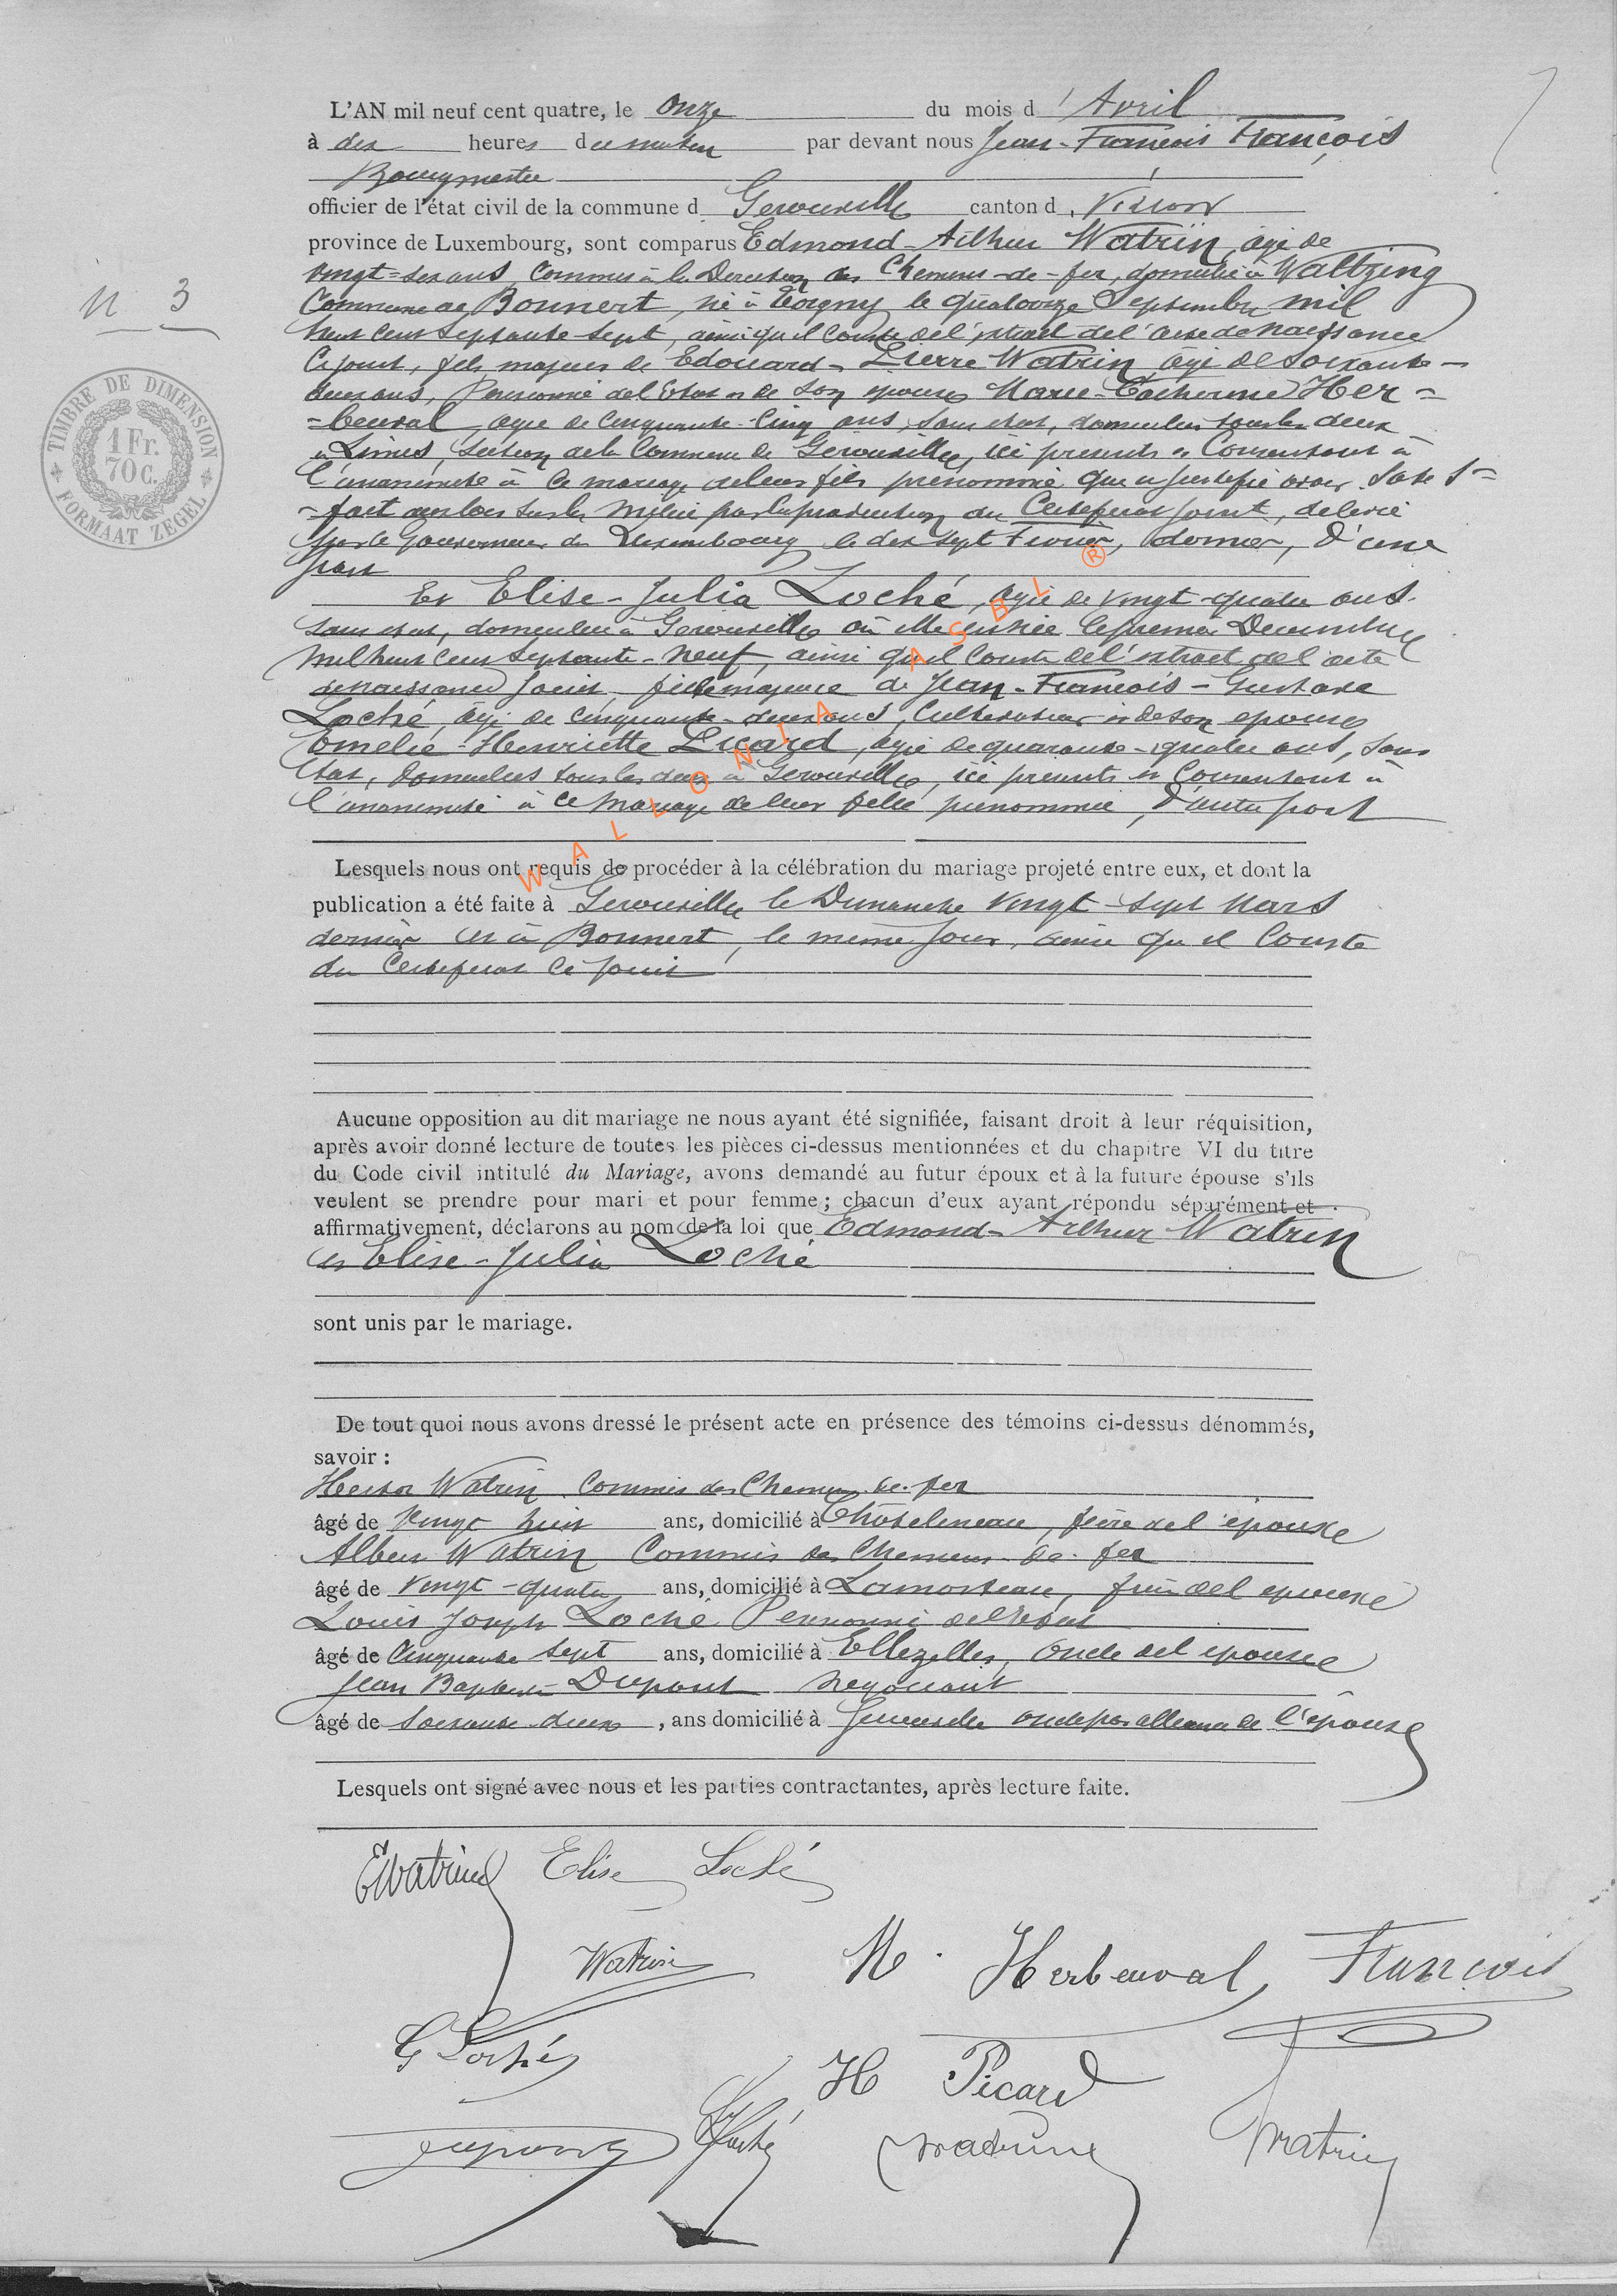 L'AN mil neuf cent quatre, le onze du mois d'Avril
à dix heures du matin par devant nous Jean-François François
Bourgmestre
officier de l'état civil de la commune d Gerouville canton d. Virton
province de Luxembourg, sont comparus Edmond-Arthur Watrin, âgé de
vingt-six ans, Commis à la Direction des Chemins-de-fer, domicilié à Waltzing
Commune de Bonnert, né à Torgny le quatorze Septembre mil
huit cent septante sept, ainsi qu'il conste de l'extrait de l'acte de naissance
ci joint, fils majeur de Edouard-Pierre Watrin âgé de soixante-
deux ans, Pensionné de l'Etat et de son épouse Marie-Catherine Her=
=beuval, âgée de cinquante-cinq ans, sans état, domiciliés tous les deux
à Limes, section de la Commune de Gerouville, ici présents et consentant à
l'unanimité à ce mariage de leur fils prénommé, qui a justifié avoir satis=
=fait aux lois sur la milice par la production du Certificat joint, délivré
par le Gouverneur du Luxembourg le dix sept Février, dernier, d'une
part
Et Elise-Julia Loché, âgée de vingt-quatre ans.
sans état, domiciliée à Gerouville où elle est née le premier Décembre
mil huit cent septante-neuf, ainsi qu'il conste de l'extrait de l'acte
de naissance joint, fille majeure de Jean-François-Gustave
Loché, âgé de cinquante-deux ans, Cultivateur et de son épouse
Emélie-Henriette Picard, âgée de quarante-quatre ans, sans
état, domiciliés tous les deux à Gerouville, ici présents et consentant à
l'unanimité à ce mariage de leur fille prénommée, d'autre part
Lesquels nous ont requis de procéder à la célébration du mariage projeté entre eux, et dont la
publication a été faite à Gerouville le Dimanche vingt-sept Mars
dernier et à Bonnert, le même jour, ainsi qu'il conste
du Certificat ci joint
Aucune opposition au dit mariage ne nous ayant été signifiée, faisant droit à leur réquisition,
après avoir donné lecture de toutes les pièces ci-dessus mentionnées et du chapitre VI du titre
du Code civil intitulé du Mariage, avons demandé au futur époux et à la future épouse s'ils
veulent se prendre pour mari et pour femme; chacun d'eux ayant répondu séparément et
affirmativement, déclarons au nom de la loi que Edmond-Arthur Watrin
et Elise-Julia Loché
sont unis par le mariage.
De tout quoi nous avons dressé le présent acte en présence des témoins ci-dessus dénommés,
savoir :
Hector Watrin Commis des Chemins-de-fer
âgé de vingt huit ans, domicilié à Châtelineau, frère de l'épouxe
Albert Watrin Commis des Chemins-de-fer
âgé de vingt-quatre ans, domicilié à Lamorteau, frère de l'épouxe
Louis Joseph Loché Pensionné de l'Etat
âgé de cinquante sept ans, domicilié à Ellezelles, oncle de l'épouse
Jean Baptiste Dupont négociant
âgé de soixante-deux, ans domicilié à Gerouville oncle par alliance de l'épouse
Lesquels ont signé avec nous et les parties contractantes, après lecture faite.
EWatrin Elise Loché
Watrin M. Herbeuval François
G Loché
H Picard
Dupont Loché Watrin Watrin
N 3
TIMBRE DE DIMENSION
1 Fr.
70 C.
FORMAAT ZEGEL
WALLONIA ASBL ®